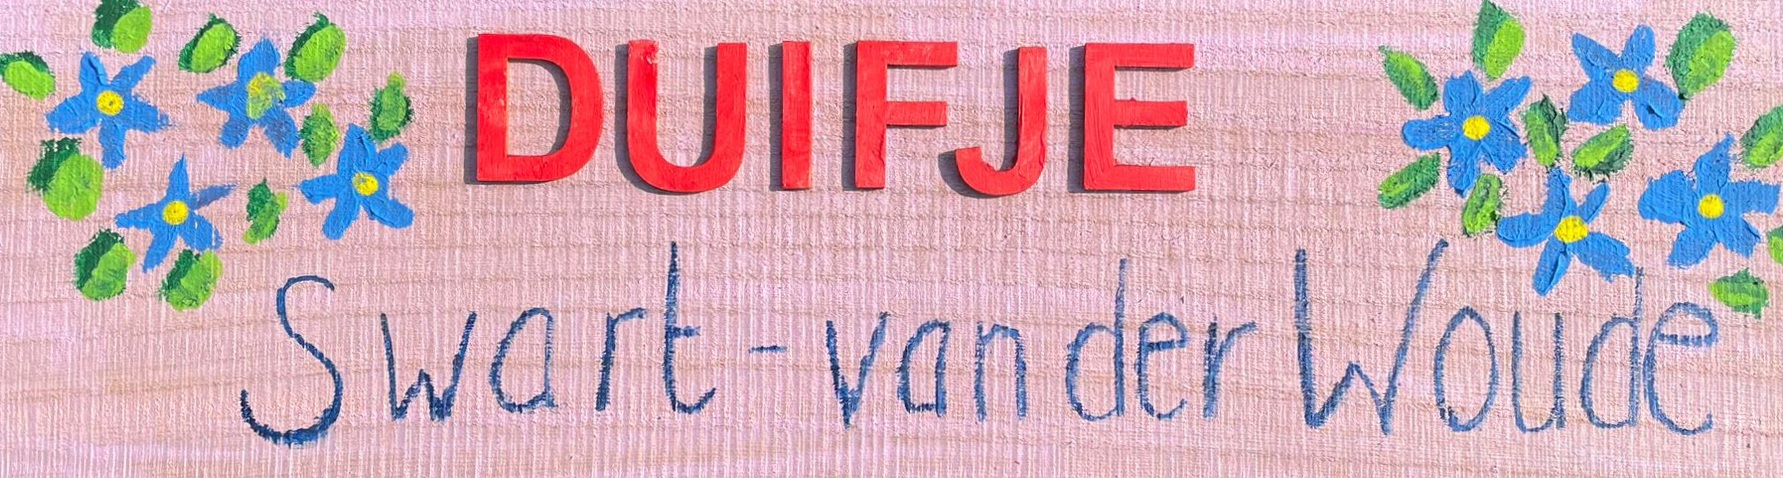 DUIFJE
Swart - van der Woude